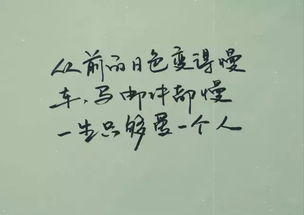 从前的日色变得慢
车,马邮件都慢
一生只够爱一个人